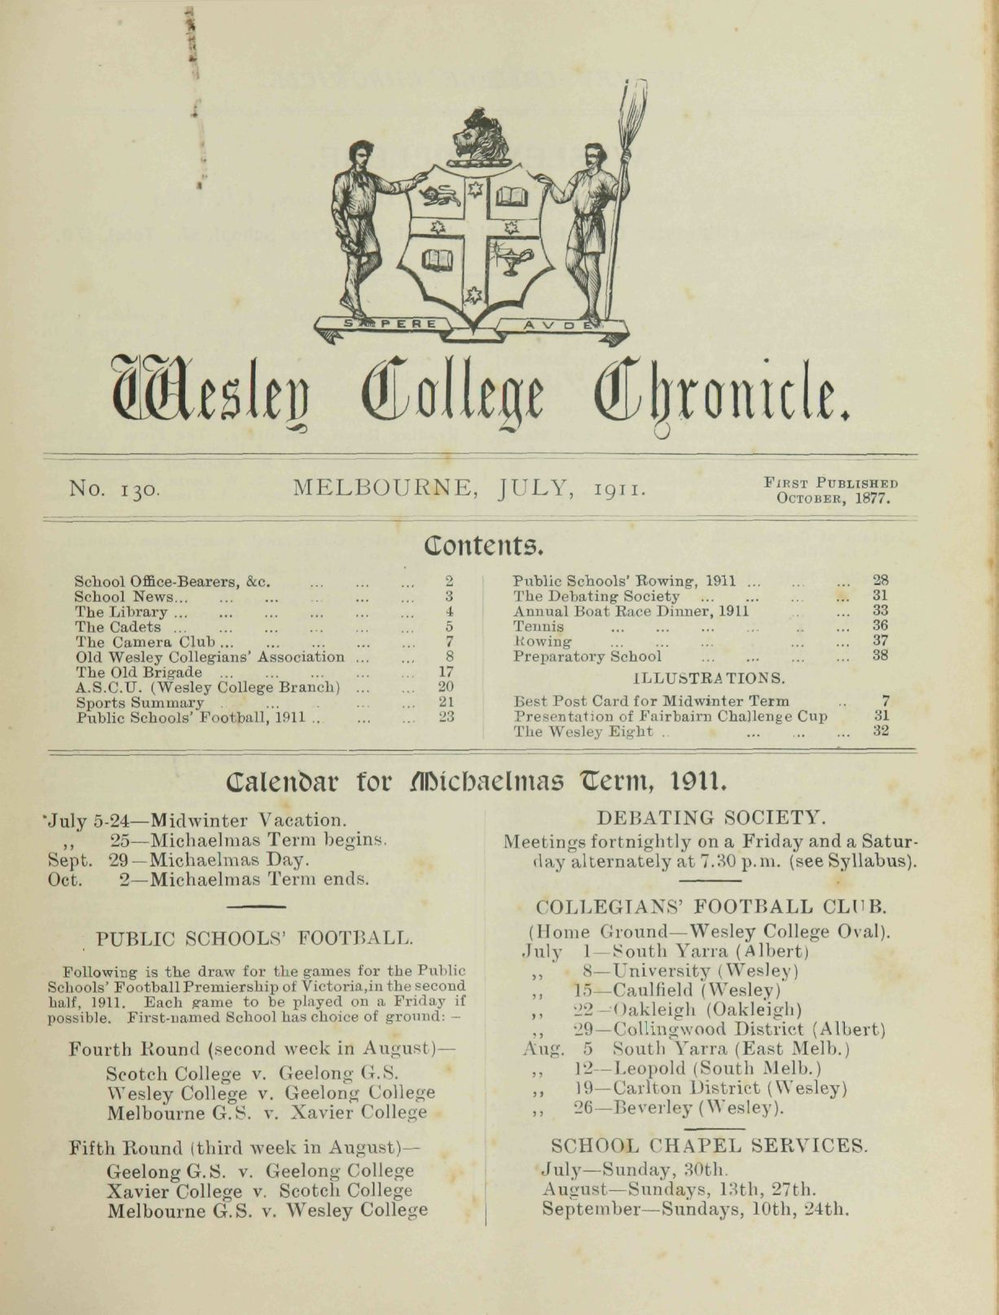 SAPERE AVDE
Wesley College Chronicle.
No. 130. MELBOURNE, JULY, 1911. First Published October, 1877.
Contents.
School Office-Bearers, &c. ... ... ... 2
School News... ... ... ... ... 3
The Library ... ... ... ... ... ... 4
The Cadets ... ... ... ... ... ... 5
The Camera Club ... ... ... ... ... 7
Old Wesley Collegians' Association ... ... 8
The Old Brigade ... ... ... ... ... 17
A.S.C.U. (Wesley College Branch) ... ... 20
Sports Summary ... ... ... 21
Public Schools' Football, 1911 .. ... ... 23
Public Schools' Rowing, 1911 ... ... ... 28
The Debating Society ... ... ... ... 31
Annual Boat Race Dinner, 1911 ... 33
Tennis ... ... ... ... ... ... 36
Rowing ... ... ... ... ... 37
Preparatory School ... ... ... ... 38
ILLUSTRATIONS.
Best Post Card for Midwinter Term .. 7
Presentation of Fairbairn Challenge Cup 31
The Wesley Eight .. ... .. ... 32
Calendar for Michaelmas Term, 1911.
July 5-24—Midwinter Vacation.
,, 25—Michaelmas Term begins.
Sept. 29—Michaelmas Day.
Oct. 2—Michaelmas Term ends.
PUBLIC SCHOOLS' FOOTBALL.
Following is the draw for the games for the Public
Schools' Football Premiership of Victoria, in the second
half, 1911. Each game to be played on a Friday if
possible. First-named School has choice of ground: —
Fourth Round (second week in August)—
Scotch College v. Geelong G.S.
Wesley College v. Geelong College
Melbourne G.S. v. Xavier College
Fifth Round (third week in August)—
Geelong G.S. v. Geelong College
Xavier College v. Scotch College
Melbourne G.S. v. Wesley College
DEBATING SOCIETY.
Meetings fortnightly on a Friday and a Satur-
day alternately at 7.30 p.m. (see Syllabus).
COLLEGIANS' FOOTBALL CLUB.
(Home Ground—Wesley College Oval).
July 1—South Yarra (Albert)
,, 8—University (Wesley)
,, 15—Caulfield (Wesley)
,, 22—Oakleigh (Oakleigh)
,, 29—Collingwood District (Albert)
Aug. 5 South Yarra (East Melb.)
,, 12—Leopold (South Melb.)
,, 19—Carlton District (Wesley)
,, 26—Beverley (Wesley).
SCHOOL CHAPEL SERVICES.
July—Sunday, 30th.
August—Sundays, 13th, 27th.
September—Sundays, 10th, 24th.